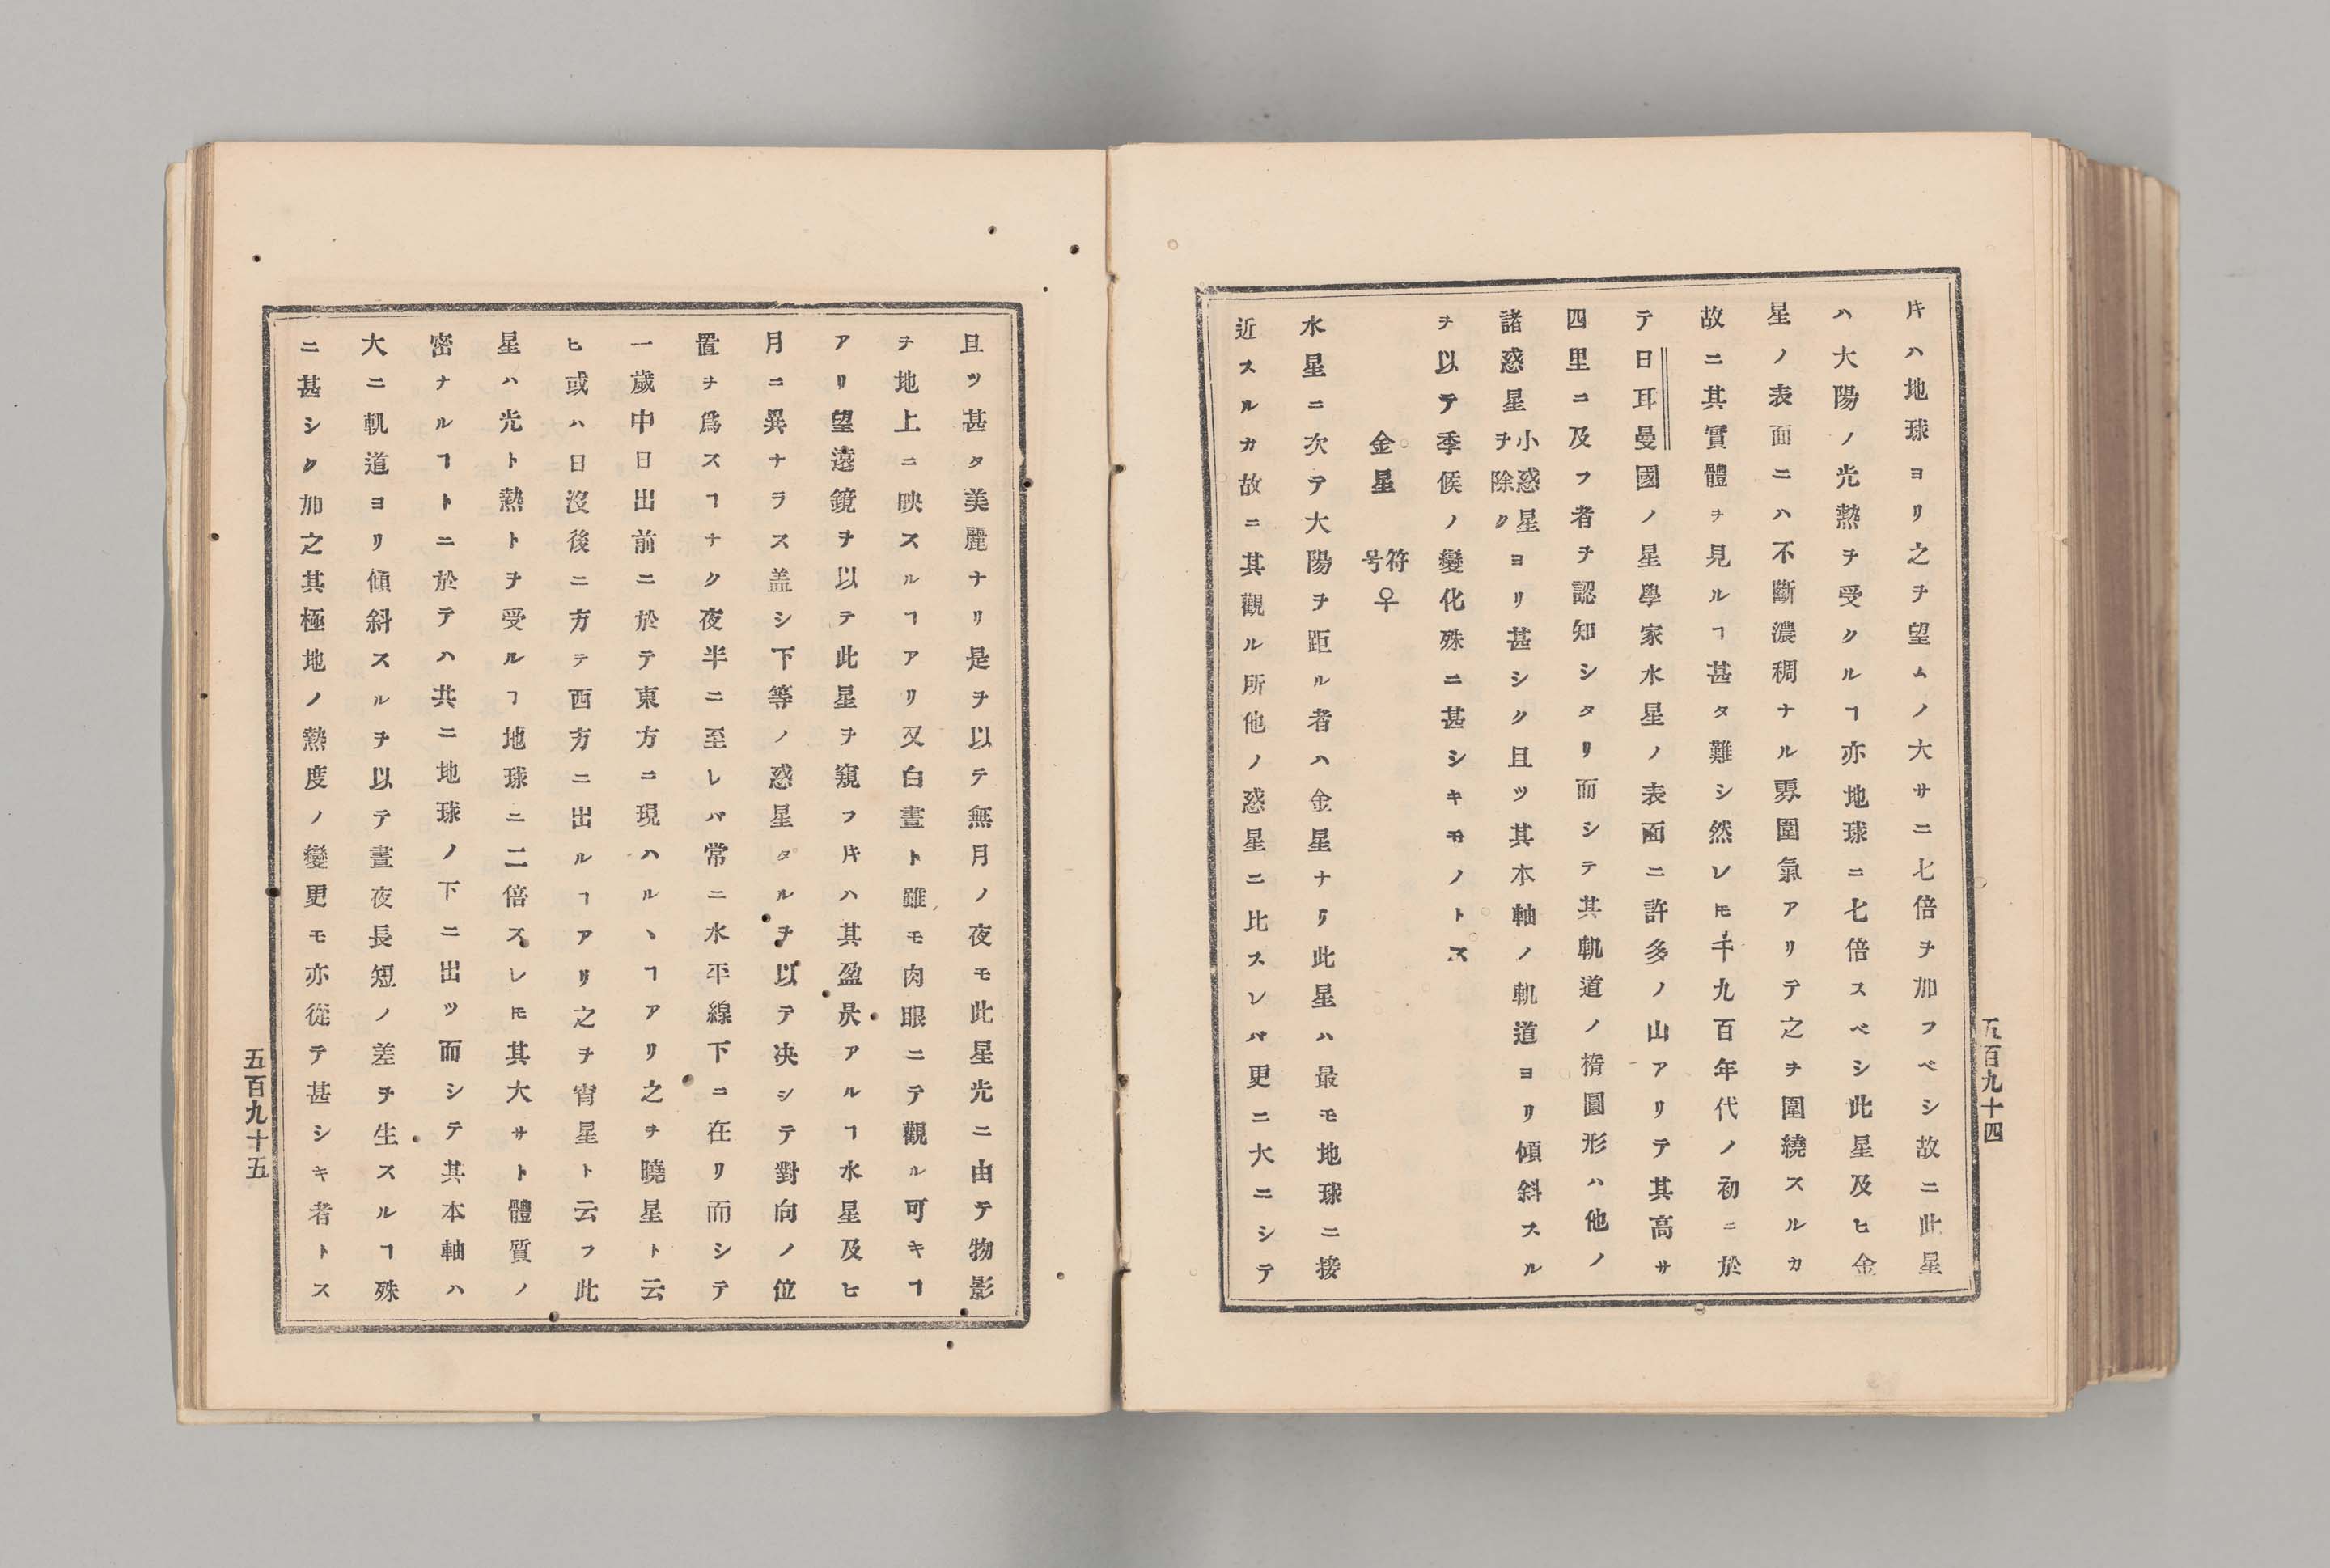 五百九十四
𪜈ハ地球ヨリ之ヲ望ムノ大サニ七倍ヲ加フベシ故ニ此星
ハ大陽ノ光熱ヲ受クルヿ亦地球ニ七倍スベシ此星及ヒ金
星ノ表面ニハ不斷濃稠ナル雰圍氣アリテ之ヲ圍繞スルカ
故ニ其實體ヲ見ルヿ甚タ難シ然レ𪜈千九百年代ノ初ニ於
テ日耳曼國ノ星學家水星ノ表面ニ許多ノ山アリテ其高サ
四里ニ及フ者ヲ認知シタリ而シテ其軌道ノ楕圓形ハ他ノ
諸惑星小惑星ヲ除クヨリ甚シク且ツ其本軸ノ軌道ヨリ傾斜スル
ヲ以テ季候ノ變化殊ニ甚シキモノトス
金星 符号♀
水星ニ次テ大陽ヲ距ル者ハ金星ナリ此星ハ最モ地球ニ接
近スルカ故ニ其觀ル所他ノ惑星ニ比スレバ更ニ大ニシテ
且ツ甚タ美麗ナリ是ヲ以テ無月ノ夜モ此星光ニ由テ物影
ヲ地上ニ映スルヿアリ又白晝ト雖モ肉眼ニテ觀ル可キヿ
アリ望遠鏡ヲ以テ此星ヲ窺フ𪜈ハ其盈昃アルヿ水星及ヒ
月ニ異ナラス盖シ下等ノ惑星タルヲ以テ决シテ對向ノ位
置ヲ爲スヿナク夜半ニ至レバ常ニ水平線下ニ在リ而シテ
一歲中日出前ニ於テ東方ニ現ハルヽヿアリ之ヲ曉星ト云
ヒ或ハ日沒後ニ方テ西方ニ出ルヿアリ之ヲ宵星ト云フ此
星ハ光ト熱トヲ受ルヿ地球ニ二倍スレ𪜈其大サト體質ノ
密ナルヿトニ於テハ共ニ地球ノ下ニ出ツ而シテ其本軸ハ
大ニ軌道ヨリ傾斜スルヲ以テ晝夜長短ノ差ヲ生スルヿ殊
ニ甚シク加之其極地ノ熱度ノ變更モ亦從テ甚シキ者トス
五百九十五